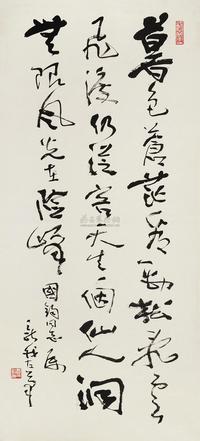 暮色蒼茫看勁松亂雲
飛渡仍從容天生一個仙人洞
無限風光在險峰 國鈞同志屬
新我左筆